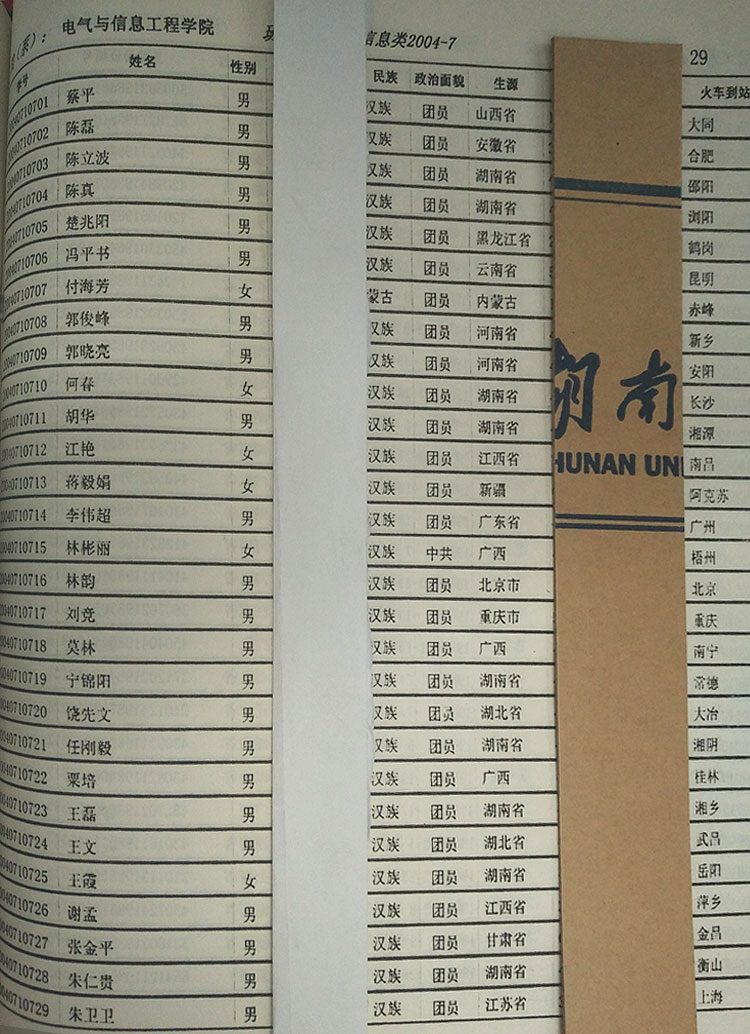 (系): 电气与信息工程学院 信息类2004-7
29
学号 姓名 性别 民族 政治面貌 生源 火车到站
20040710701 蔡平 男 汉族 团员 山西省 大同
20040710702 陈磊 男 汉族 团员 安徽省 合肥
20040710703 陈立波 男 汉族 团员 湖南省 邵阳
20040710704 陈真 男 汉族 团员 湖南省 浏阳
20040710705 楚兆阳 男 汉族 团员 黑龙江省 鹤岗
20040710706 冯平书 男 汉族 团员 云南省 昆明
20040710707 付海芳 女 蒙古 团员 内蒙古 赤峰
20040710708 郭俊峰 男 汉族 团员 河南省 新乡
20040710709 郭晓亮 男 汉族 团员 河南省 安阳
20040710710 何春 女 汉族 团员 湖南省 长沙
20040710711 胡华 男 汉族 团员 湖南省 湘潭
20040710712 江艳 女 汉族 团员 江西省 南昌
20040710713 蒋毅娟 女 汉族 团员 新疆 阿克苏
20040710714 李伟超 男 汉族 团员 广东省 广州
20040710715 林彬丽 女 汉族 中共 广西 梧州
20040710716 林韵 男 汉族 团员 北京市 北京
20040710717 刘竞 男 汉族 团员 重庆市 重庆
20040710718 莫林 男 汉族 团员 广西 南宁
20040710719 宁锦阳 男 汉族 团员 湖南省 常德
20040710720 饶先文 男 汉族 团员 湖北省 大冶
20040710721 任刚毅 男 汉族 团员 湖南省 湘阴
20040710722 粟培 男 汉族 团员 广西 桂林
20040710723 王磊 男 汉族 团员 湖南省 湘乡
20040710724 王文 男 汉族 团员 湖北省 武昌
20040710725 王霞 女 汉族 团员 湖南省 岳阳
20040710726 谢孟 男 汉族 团员 江西省 萍乡
20040710727 张金平 男 汉族 团员 甘肃省 金昌
20040710728 朱仁贵 男 汉族 团员 湖南省 衡山
20040710729 朱卫卫 男 汉族 团员 江苏省 上海
湖南
HUNAN UNI